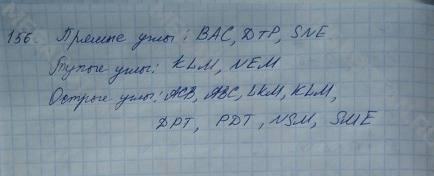 156 Прямые углы: BAC, DTP, SNE
Тупые углы: KLM, NEM
Острые углы: ACB, ABC, LKM, KLM,
DPT, PDT, NSM, SME